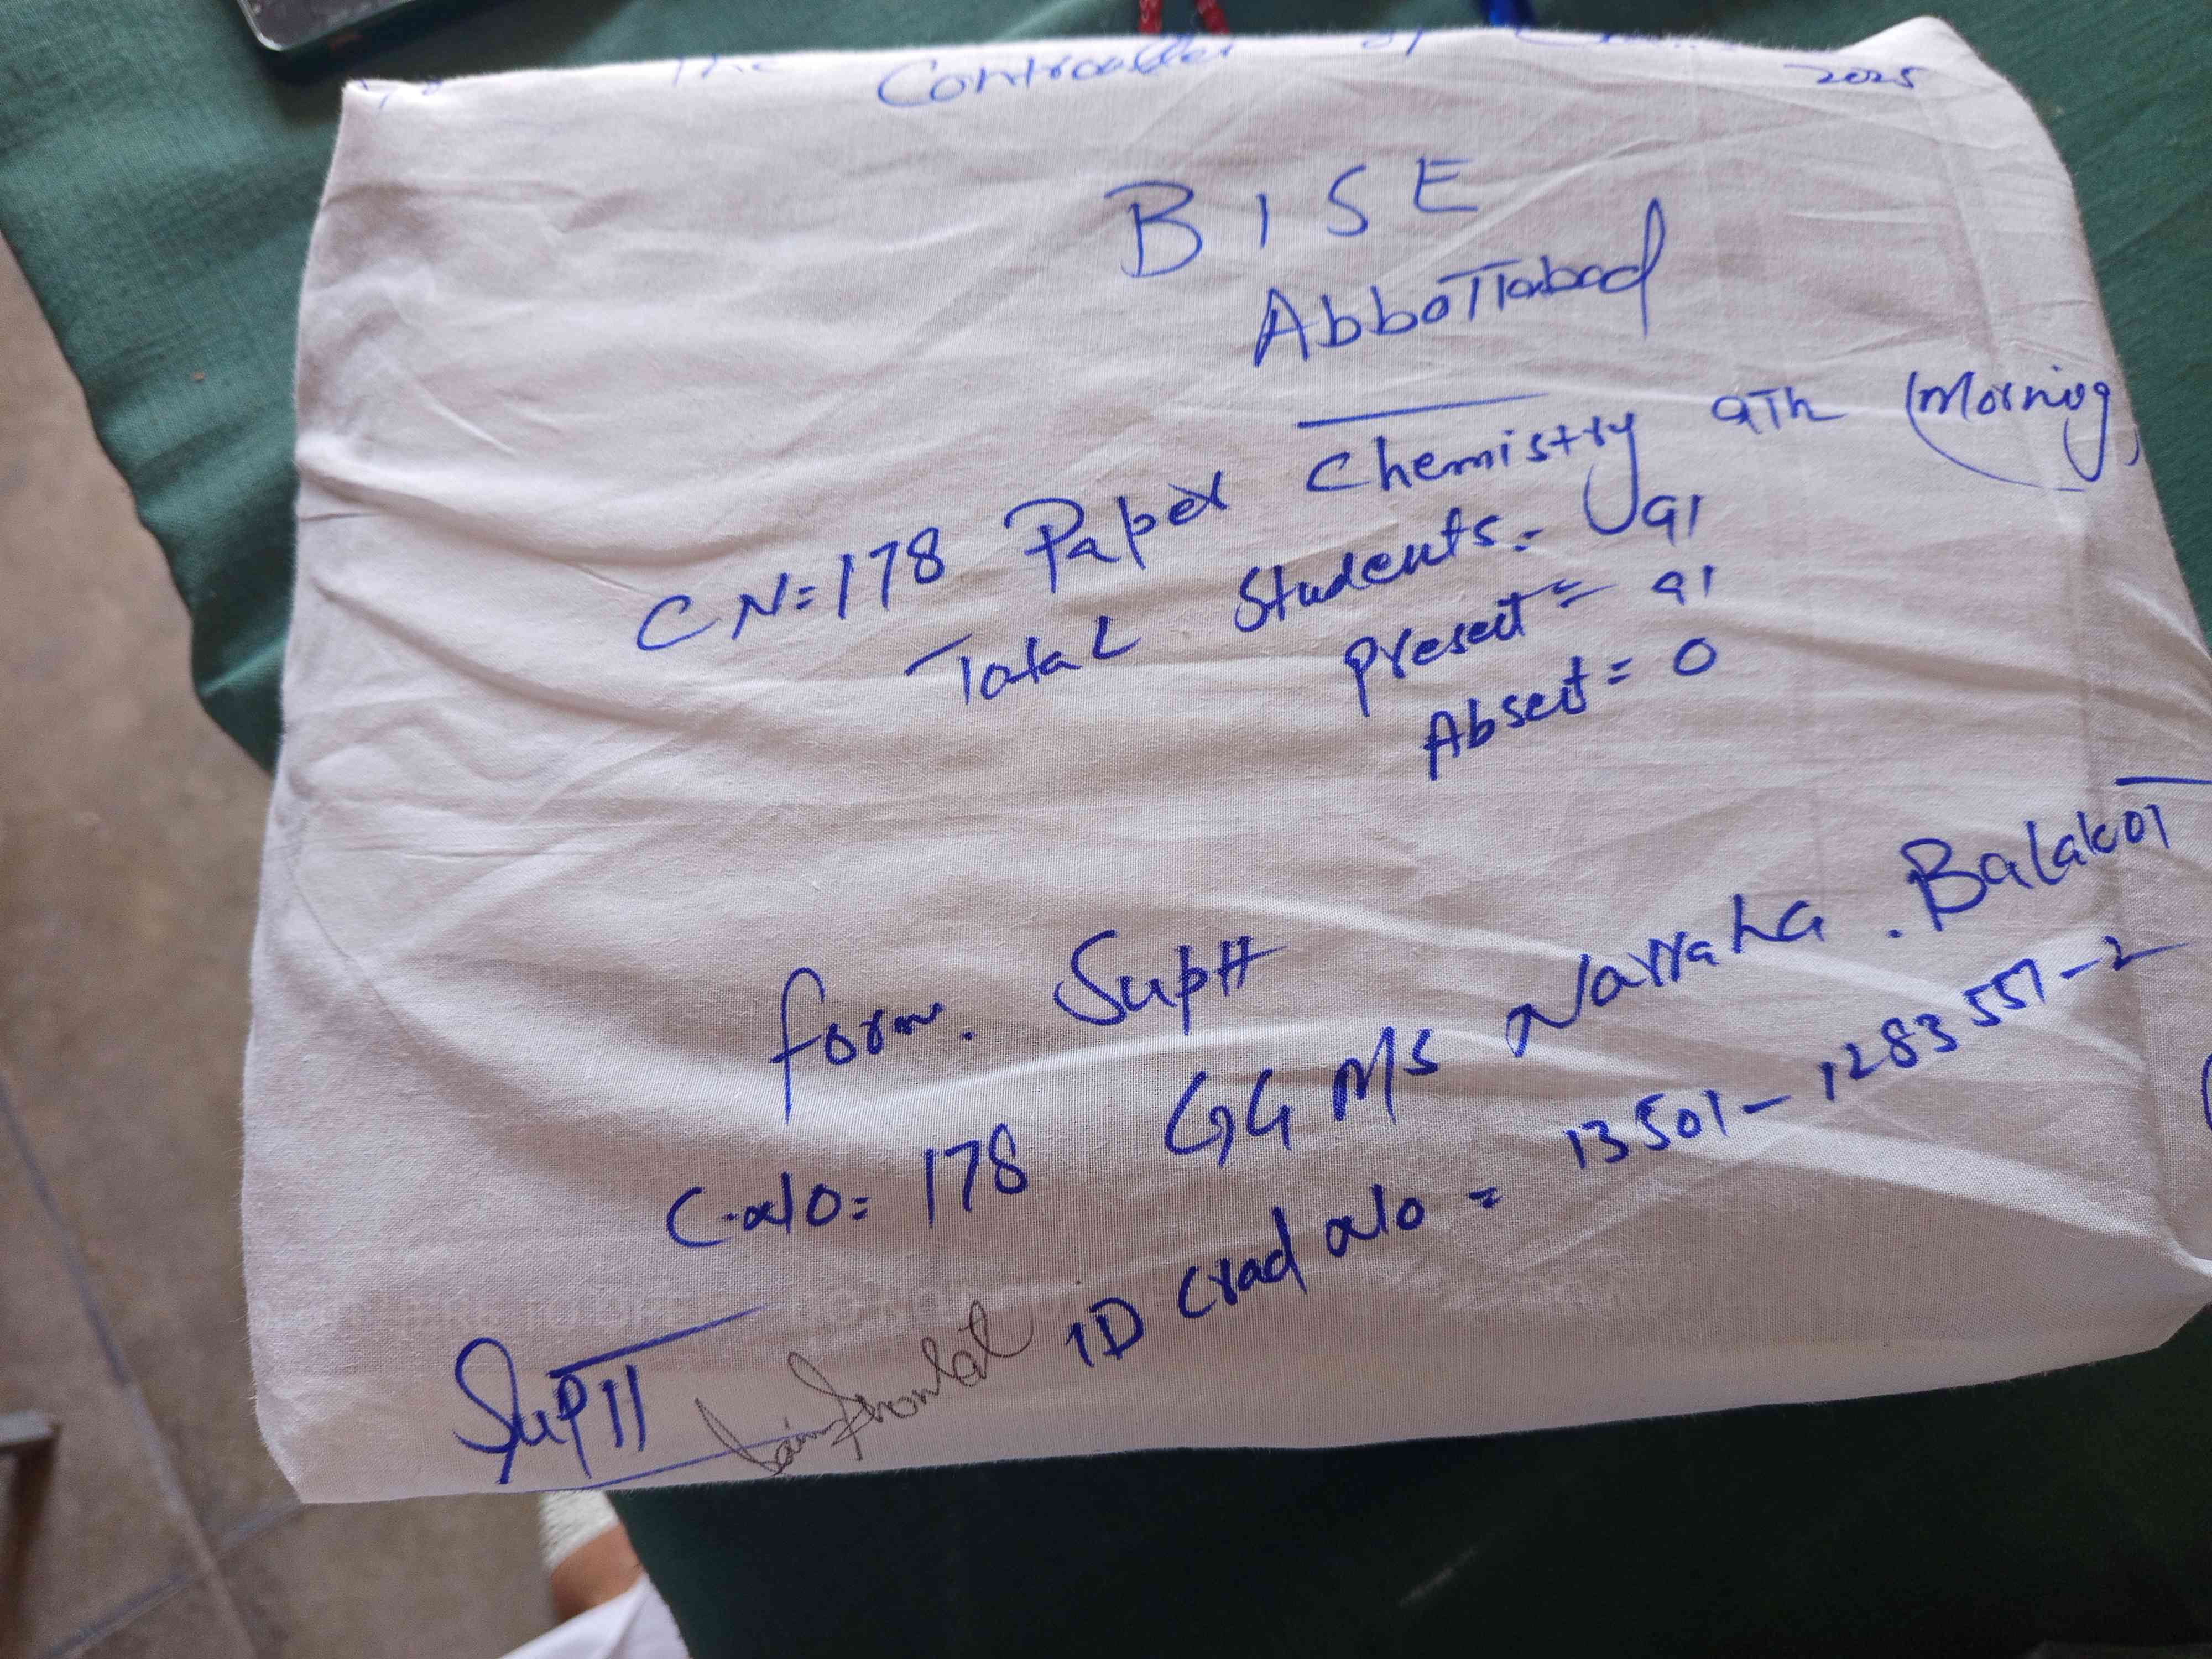 The
Controller of
2025
BISE
Abbottabad
CN=178 Paper Chemistry 9Th (Morning)
Total Students = 91
Present = 91
Absent = 0
form. Suptt
C.No= 178 GGMS Narraha. Balakot
ID Crad No = 13501-1283557-2
Suptt